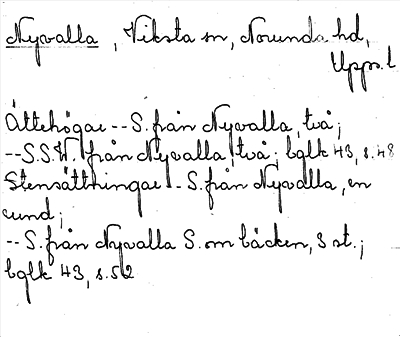 Nyvalla, Viksta sn, Norunda hd,
Upps. l
Ättehögar -- S. från Nyvalla, två;
-- S.S.W. från Nyvalla, två; bglk 43, s. 48
Stensättningar - S. från Nyvalla, en
rund;
-- S. från Nyvalla S. om bäcken, 3 st.;
bglk 43, s. 52